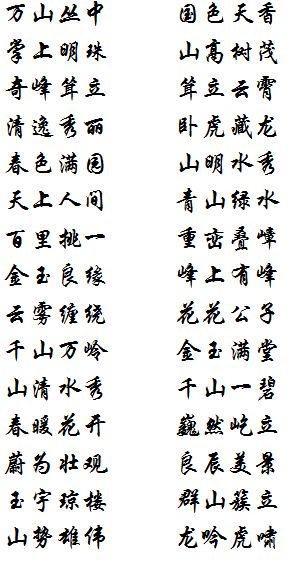 万山丛中 国色天香
掌上明珠 山高树茂
奇峰耸立 耸立云霄
清逸秀丽 卧虎藏龙
春色满园 山明水秀
天上人间 青山绿水
百里挑一 重峦叠嶂
金玉良缘 峰上有峰
云雾缠绕 花花公子
千山万岭 金玉满堂
山清水秀 千山一碧
春暖花开 巍然屹立
蔚为壮观 良辰美景
玉宇琼楼 群山簇立
山势雄伟 龙吟虎啸